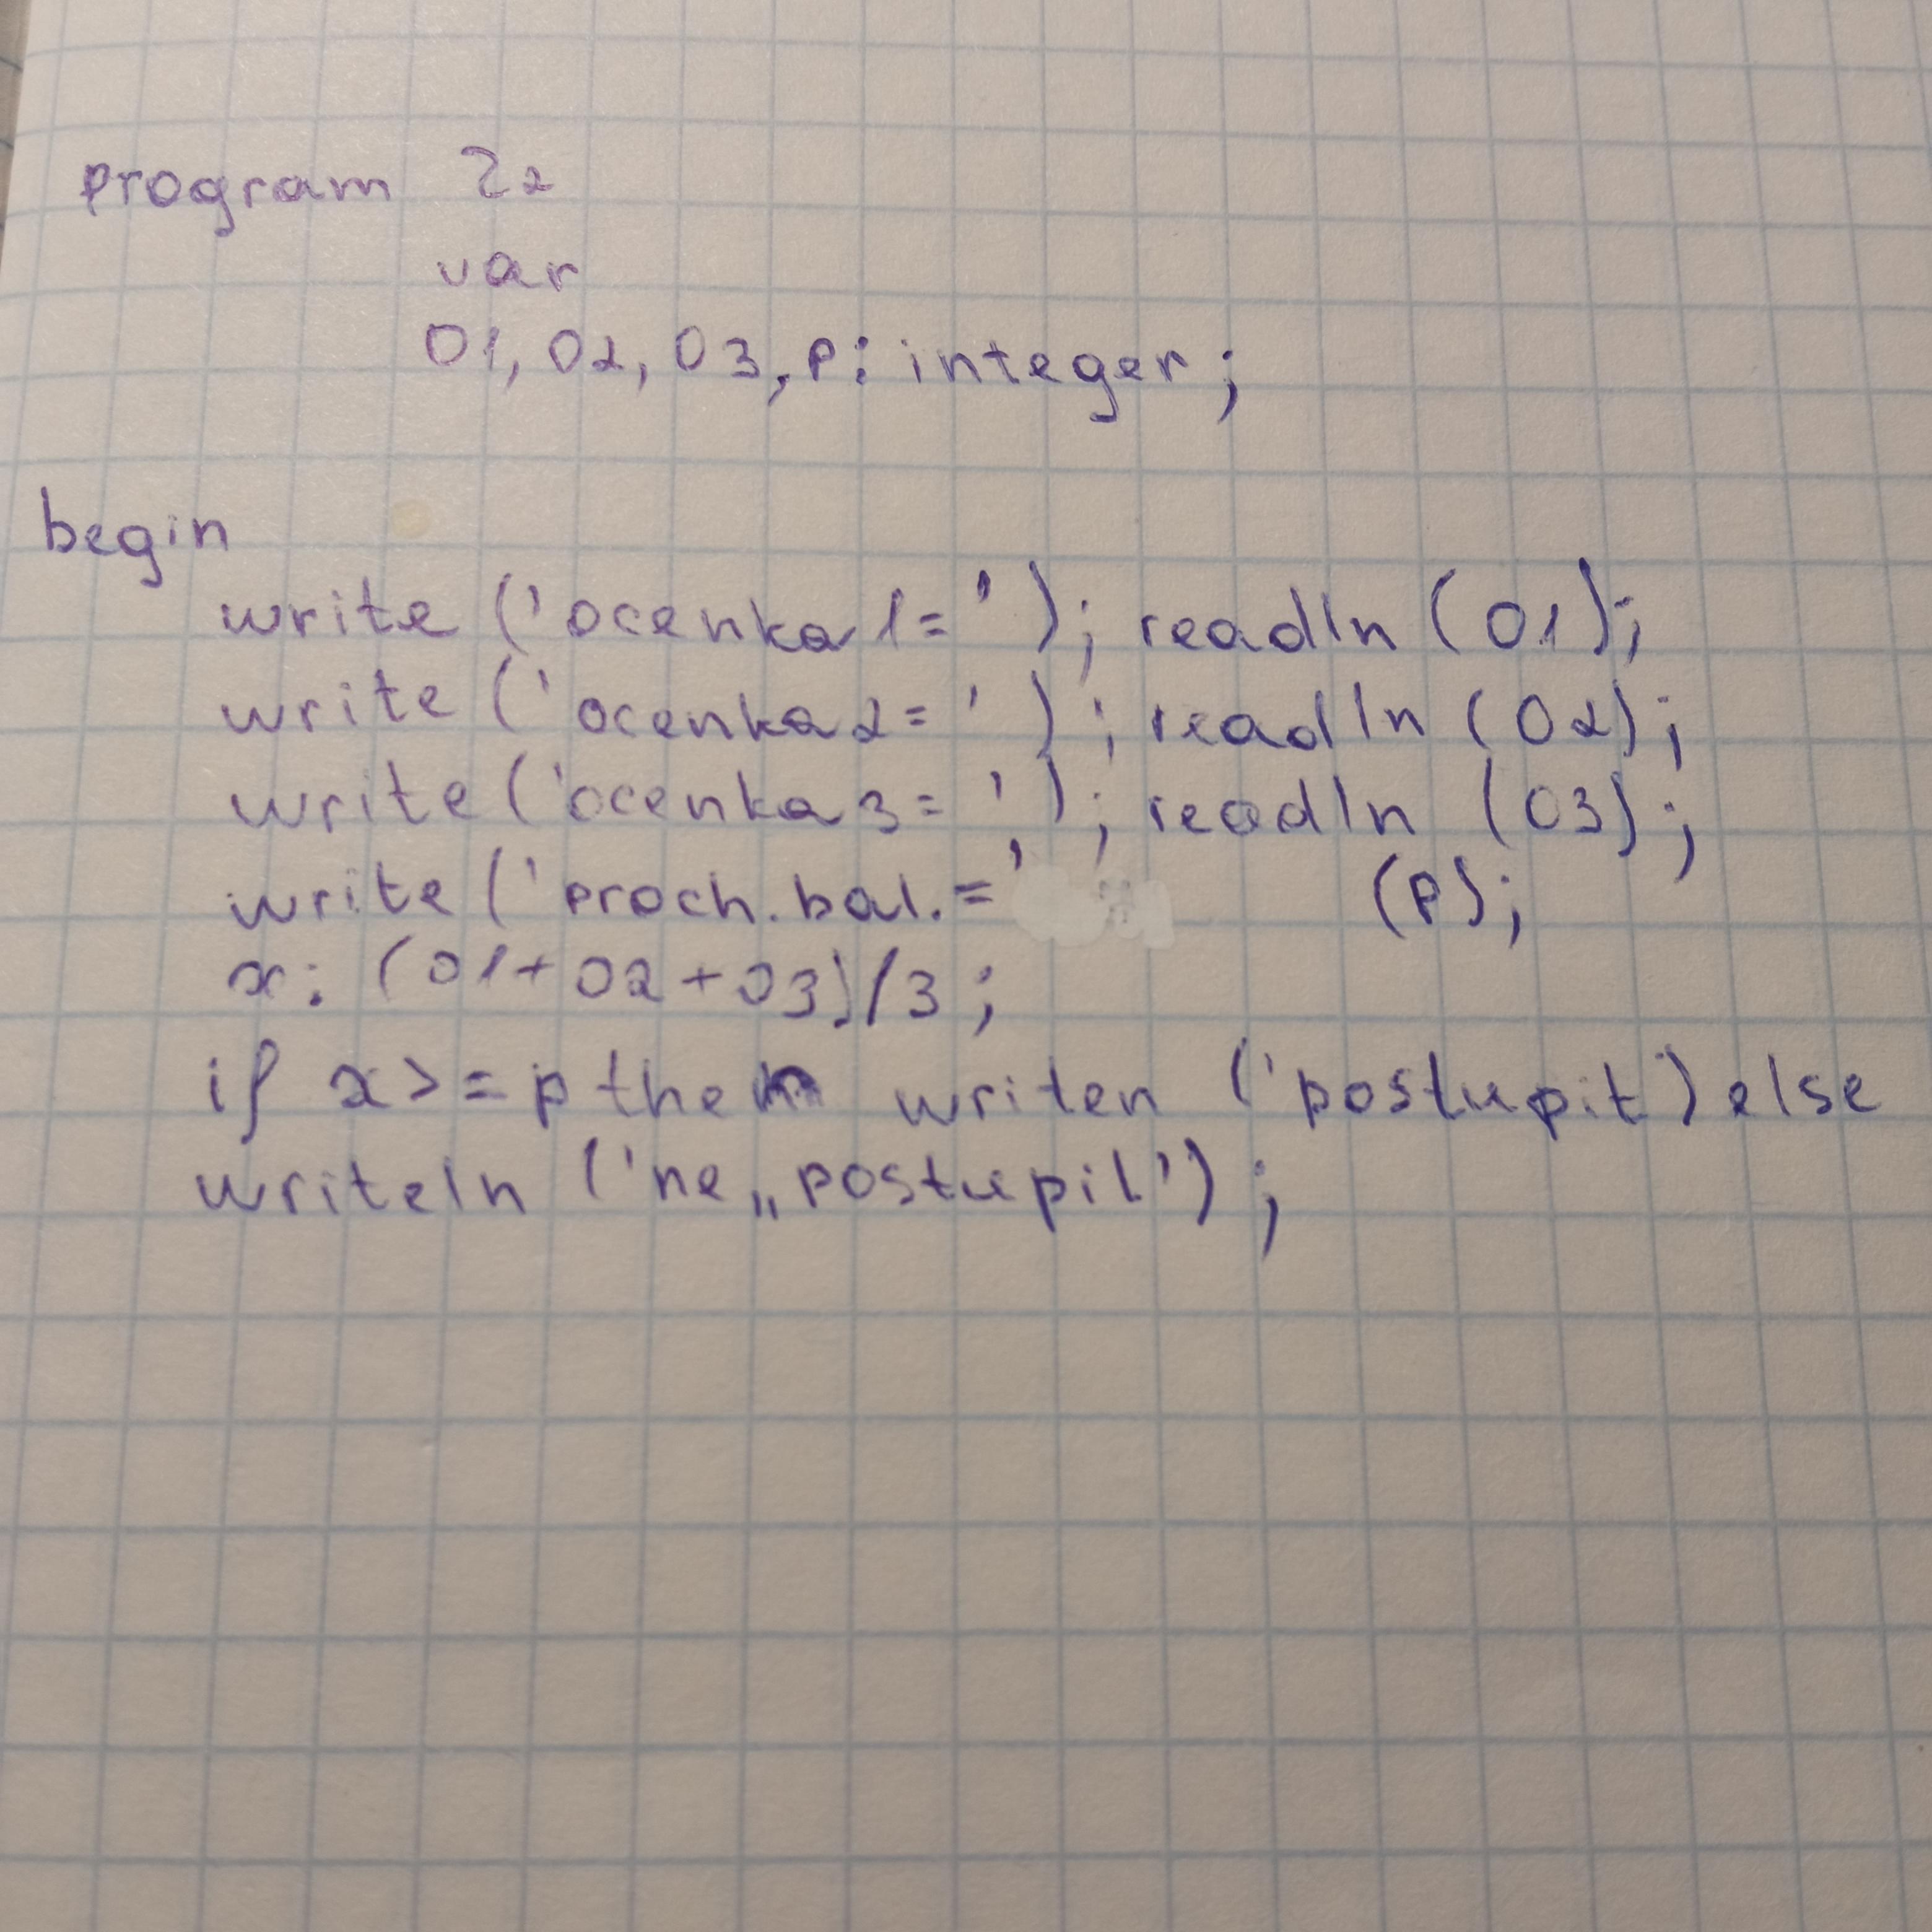 program Z2
var
O1, O2, O3, p: integer;
begin
write ('ocenka1='); readln (O1);
write ('ocenka2='); readln (O2);
write ('ocenka3='); readln (O3);
write ('proch.bal.=' (p);
x: (O1+O2+O3)/3;
if x>=p then writen ('postupit) else
writeln ('ne„postupil');